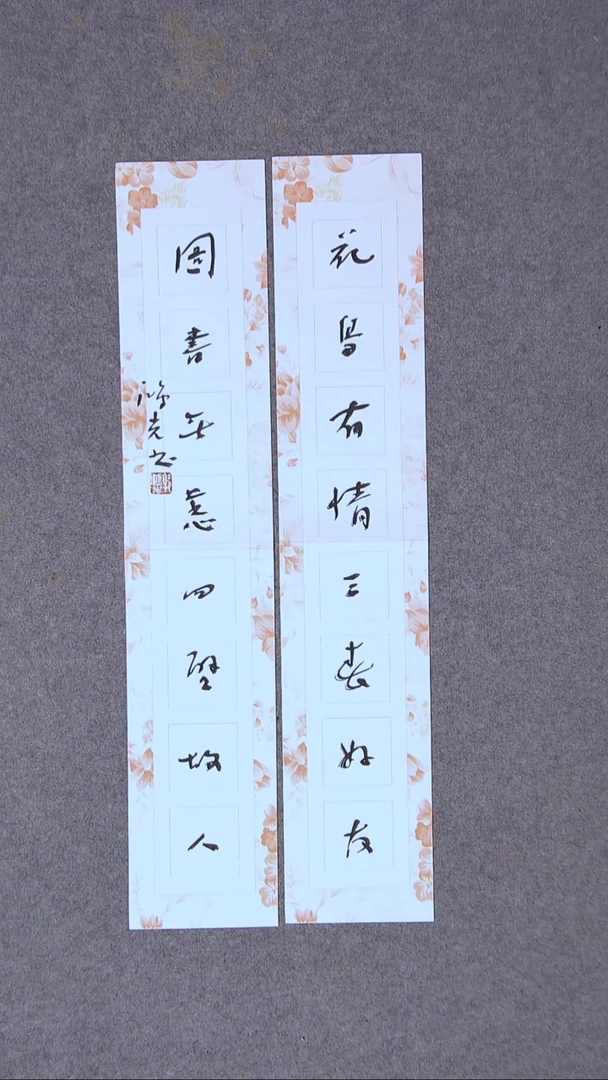 花鸟有情三春好友
图书无恙四壁故人
鸿克书